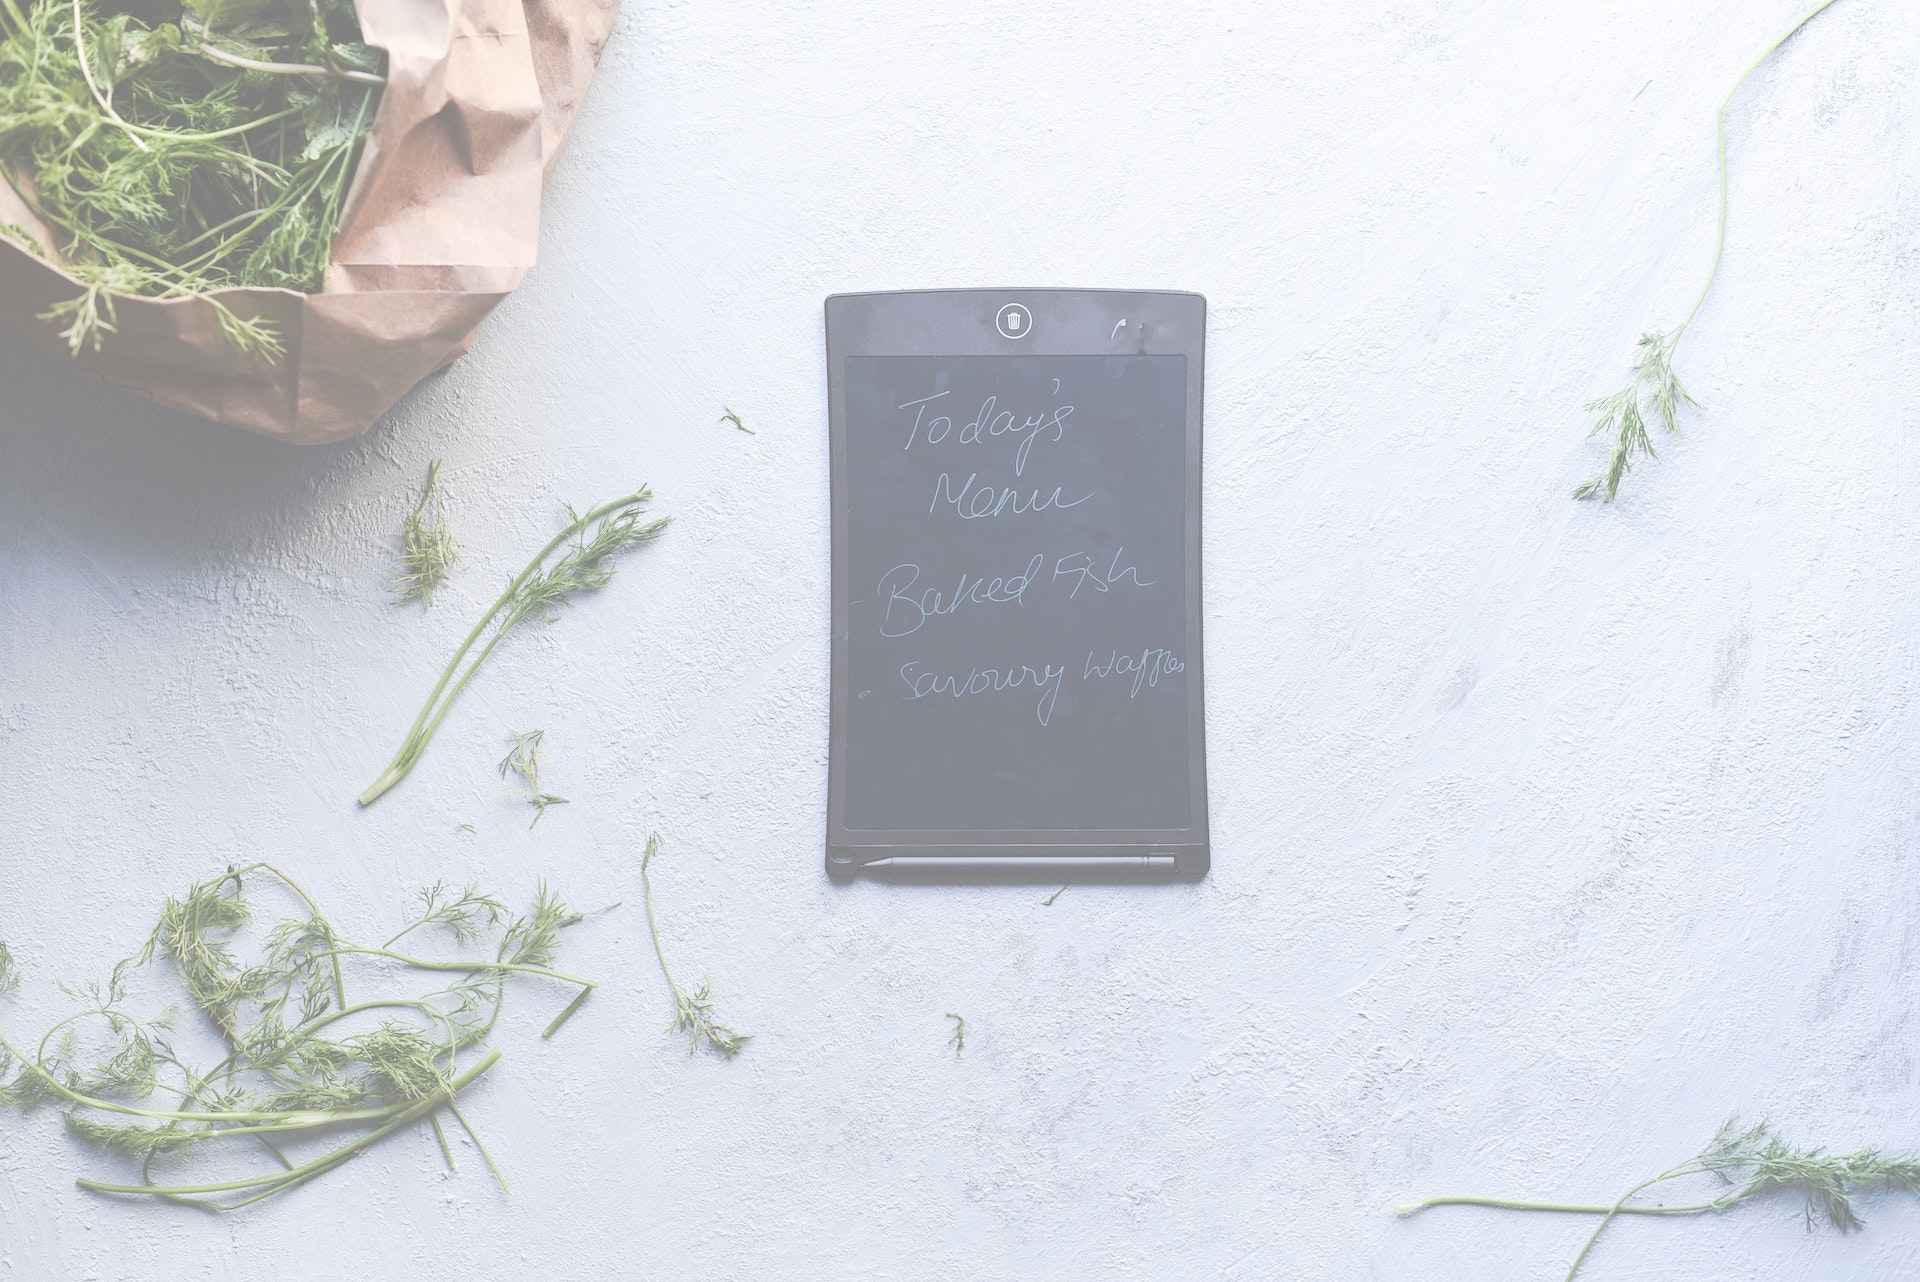 Today's
Menu
- Baked Fish
- Savoury Waffles